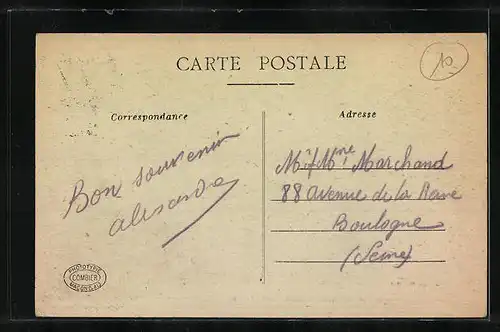 CARTE POSTALE
10
Correspondance
Bon souvenir
Adresse
Mr/Mme Marchand
88 avenue de la Reine
Boulogne
(Seine)
PHOTOTYPIE
COMBIER
MACON (S&L)